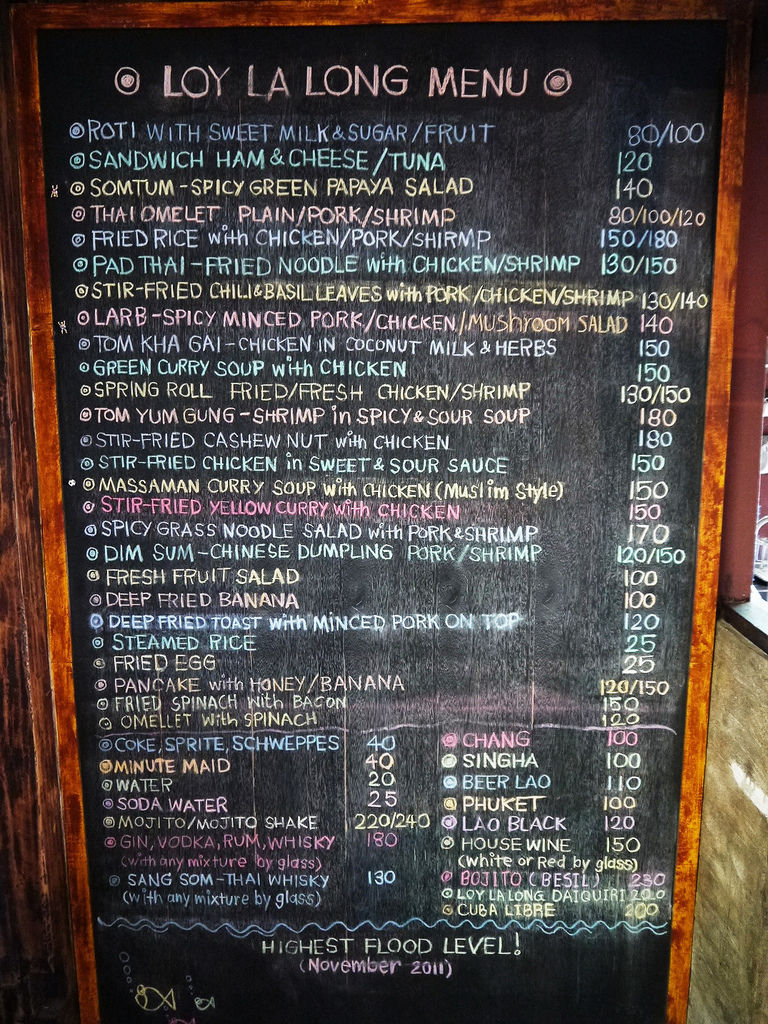 LOY LA LONG MENU
ROTI WITH SWEET MILK & SUGAR/FRUIT 80/100
SANDWICH HAM & CHEESE/TUNA 120
SOMTUM - SPICY GREEN PAPAYA SALAD 140
THAI OMELET PLAIN/PORK/SHRIMP 80/100/120
FRIED RICE with CHICKEN/PORK/SHIRMP 150/180
PAD THAI - FRIED NOODLE with CHICKEN/SHRIMP 130/150
STIR-FRIED CHILI & BASIL LEAVES with PORK/CHICKEN/SHRIMP 130/140
LARB - SPICY MINCED PORK/CHICKEN/MUShrOOM SALAD 140
TOM KHA GAI - CHICKEN IN COCONUT MILK & HERBS 150
GREEN CURRY SOUP with CHICKEN 150
SPRING ROLL FRIED/FRESH CHICKEN/SHRIMP 130/150
TOM YUM GUNG - SHRIMP in SPICY & SOUR SOUP 180
STIR-FRIED CASHEW NUT with CHICKEN 180
STIR-FRIED CHICKEN in SWEET & SOUR SAUCE 150
MASSAMAN CURRY SOUP with CHICKEN (Muslim Style) 150
STIR-FRIED YELLOW CURRY with CHICKEN 150
SPICY GRASS NOODLE SALAD with PORK & SHRIMP 170
DIM SUM - CHINESE DUMPLING PORK/SHRIMP 120/150
FRESH FRUIT SALAD 100
DEEP FRIED BANANA 100
DEEP FRIED TOAST with MINCED PORK ON TOP 120
STEAMED RICE 25
FRIED EGG 25
PANCAKE with HONEY/BANANA 120/150
FRIED SPINACH with BACON 150
OMELLET with SPINACH 120
COKE, SPRITE, SCHWEPPES 40
MINUTE MAID 40
WATER 20
SODA WATER 25
MOJITO/MOJITO SHAKE 220/240
GIN, VODKA, RUM, WHISKY 180
(with any mixture by glass)
SANG SOM - THAI WHISKY 130
(with any mixture by glass)
CHANG 100
SINGHA 100
BEER LAO 110
PHUKET 100
LAO BLACK 120
HOUSE WINE 150
(white or Red by glass)
BOJITO (BESIL) 230
LOY LA LONG DAIQUIRI 200
CUBA LIBRE 200
HIGHEST FLOOD LEVEL!
(November 2011)